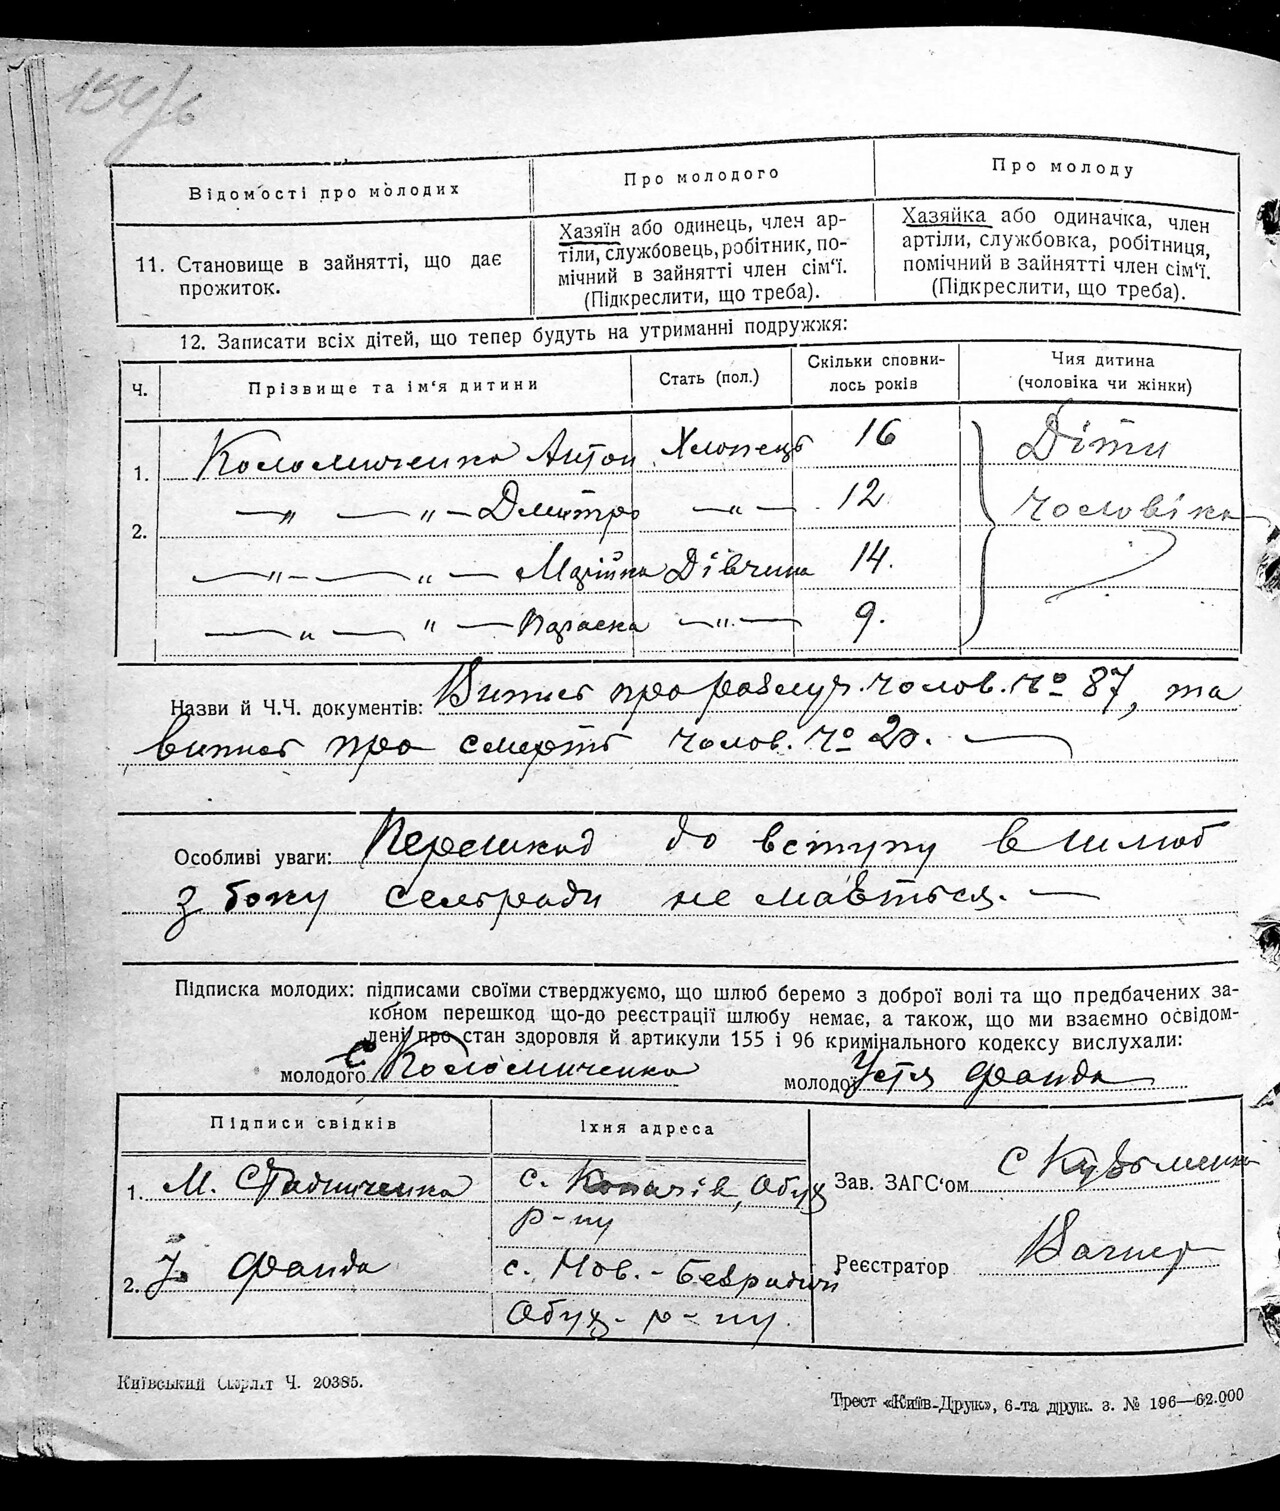 154/6
Відомості про молодих
Про молодого
Про молоду
11. Становище в зайнятті, що дає
прожиток.
Хазяїн або одинець, член ар-
тіли, службовець, робітник, по-
мічний в зайнятті член сім'ї.
(Підкреслити, що треба).
Хазяйка або одиначка, член
артіли, службовка, робітниця,
помічний в зайнятті член сім'ї.
(Підкреслити, що треба).
12. Записати всіх дітей, що тепер будуть на утриманні подружжя:
Ч.
Прізвище та ім'я дитини
Стать (пол.)
Скільки сповни-
лось років
Чия дитина
(чоловіка чи жінки)
1. Коломиченко Антон Хлопець 16 Діти
—„— —„— Дмитро —„— 12 чоловіка
2.
—„— —„— Марійка Дівчина 14.
—„— —„— Параска —„— 9.
Назви й Ч.Ч. документів: Витяг про розлуч. чолов. № 87, та
витяг про смерть чолов. № 20.
Особливі уваги: Перешкод до вступу в шлюб
з боку сельради не мається.
Підписка молодих: підписами своїми стверджуємо, що шлюб беремо з доброї волі та що предбачених за-
коном перешкод що-до реєстрації шлюбу немає, а також, що ми взаємно освідом-
лені про стан здоровля й артикули 155 і 96 кримінального кодексу вислухали:
молодого С Коломиченко молодої Устя Фанда
Підписи свідків
Їхня адреса
1. М. Стадниченко с. Копачів, Обух
р-ну
Зав. ЗАГС'ом С Кузьменко
2. Фанда с. Нов.-Безрадичі
Обух- р-ну.
Реєстратор Вагнер
Київський Окрліт Ч. 20385.
Трест «Київ-Друк», 6-та друк. з. № 196—62.000